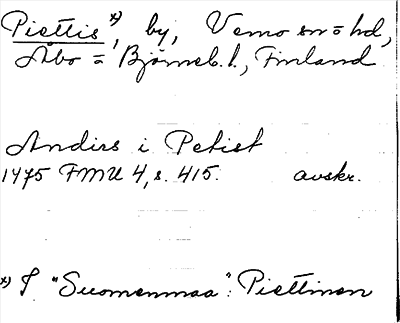 Piettis *), by, Vemo sn = hd,
Åbo = Björneb. l., Finland
Andirs i Petist
1475 FMU 4, s. 415. avskr.
*) I "Suomenmaa": Piettinen